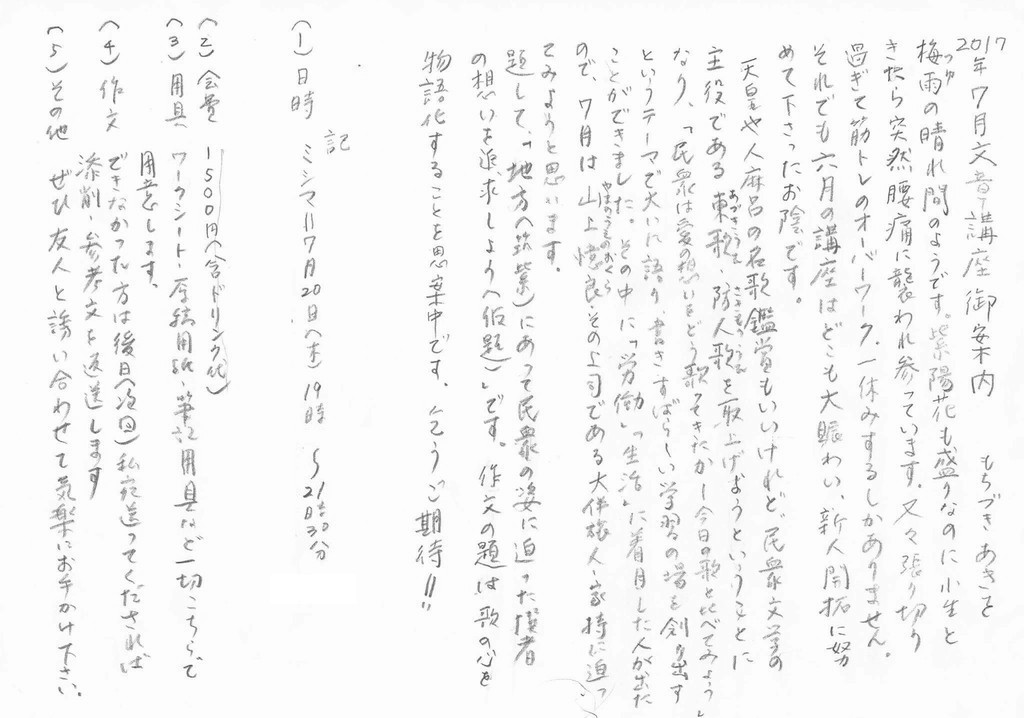 2017年7月文章講座御案内　もちづきあきと
梅雨の晴れ間のようです。紫陽花も盛りなのに小生と
つゆ
きたら突然腰痛に襲われ参っています。又々張り切り
過ぎて筋トレのオーバーワーク。一休みするしかありません。
それでも六月の講座はどこも大賑わい、新人開拓に努
めて下さったお陰です。
天皇や人麻呂の名歌鑑賞もいいけれど、民衆文学の
主役である東歌・防人歌を取上げようということに
あづまうた　さきもりうた
なり、「民衆は愛の想いをどう歌ってきたかー今日の歌と比べてみよう」
というテーマで大いに語り、書きすばらしい学習の場を創り出す
ことができました。その中に「労働」「生活」に着目した人が出た
やまのうえのおくら
ので、7月は山上憶良・その上司である大伴旅人・家持に迫っ
てみようと思います。
題して、「地方（筑紫）にあって民衆の姿に迫った撰者
の想いを追求しよう（仮題）」です。作文の題は、歌の心を
物語化することを思案中です。乞うご期待!!
記
（1）日時　ミシマ＝7月20日（木）19時〜21時30分
（2）会費　1500円（含ドリンク代）
（3）用具　ワークシート・原稿用紙・筆記用具など一切こちらで
用意します。
（4）作文　できなかった方は後日（次回）私宛送ってくだされば
添削・参考文を返送します
（5）その他　ぜひ友人と誘い合わせて気楽にお出かけ下さい。